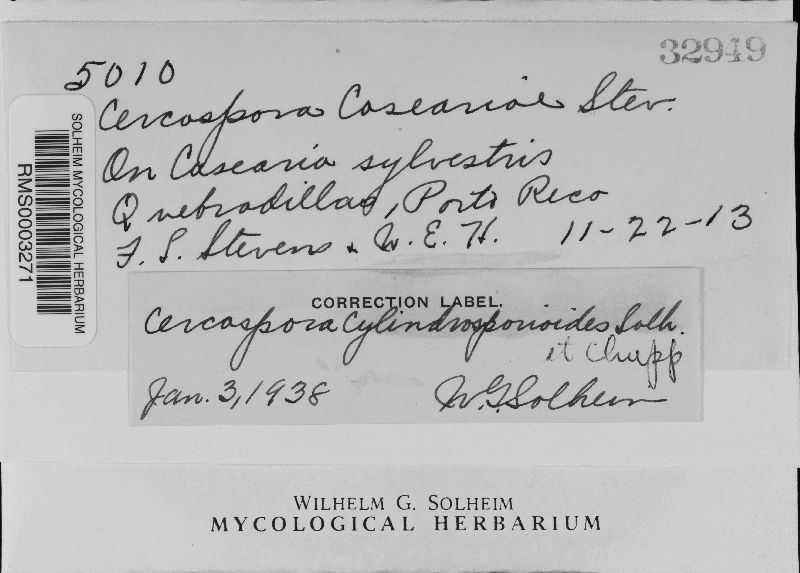 32949
5010
Cercospora Caseariae Stev.
On Casearia sylvestris
Quebradillas, Porto Rico
F. S. Stevens & W. E. H. 11-22-13
SOLHEIM MYCOLOGICAL HERBARIUM
RMS0003271
CORRECTION LABEL.
Cercospora Cylindrosporioides Solh.
et Chupp
Jan. 3, 1938 W.G. Solheim
WILHELM G. SOLHEIM
MYCOLOGICAL HERBARIUM